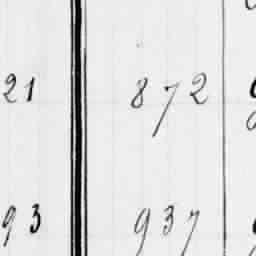 21 872
93 937